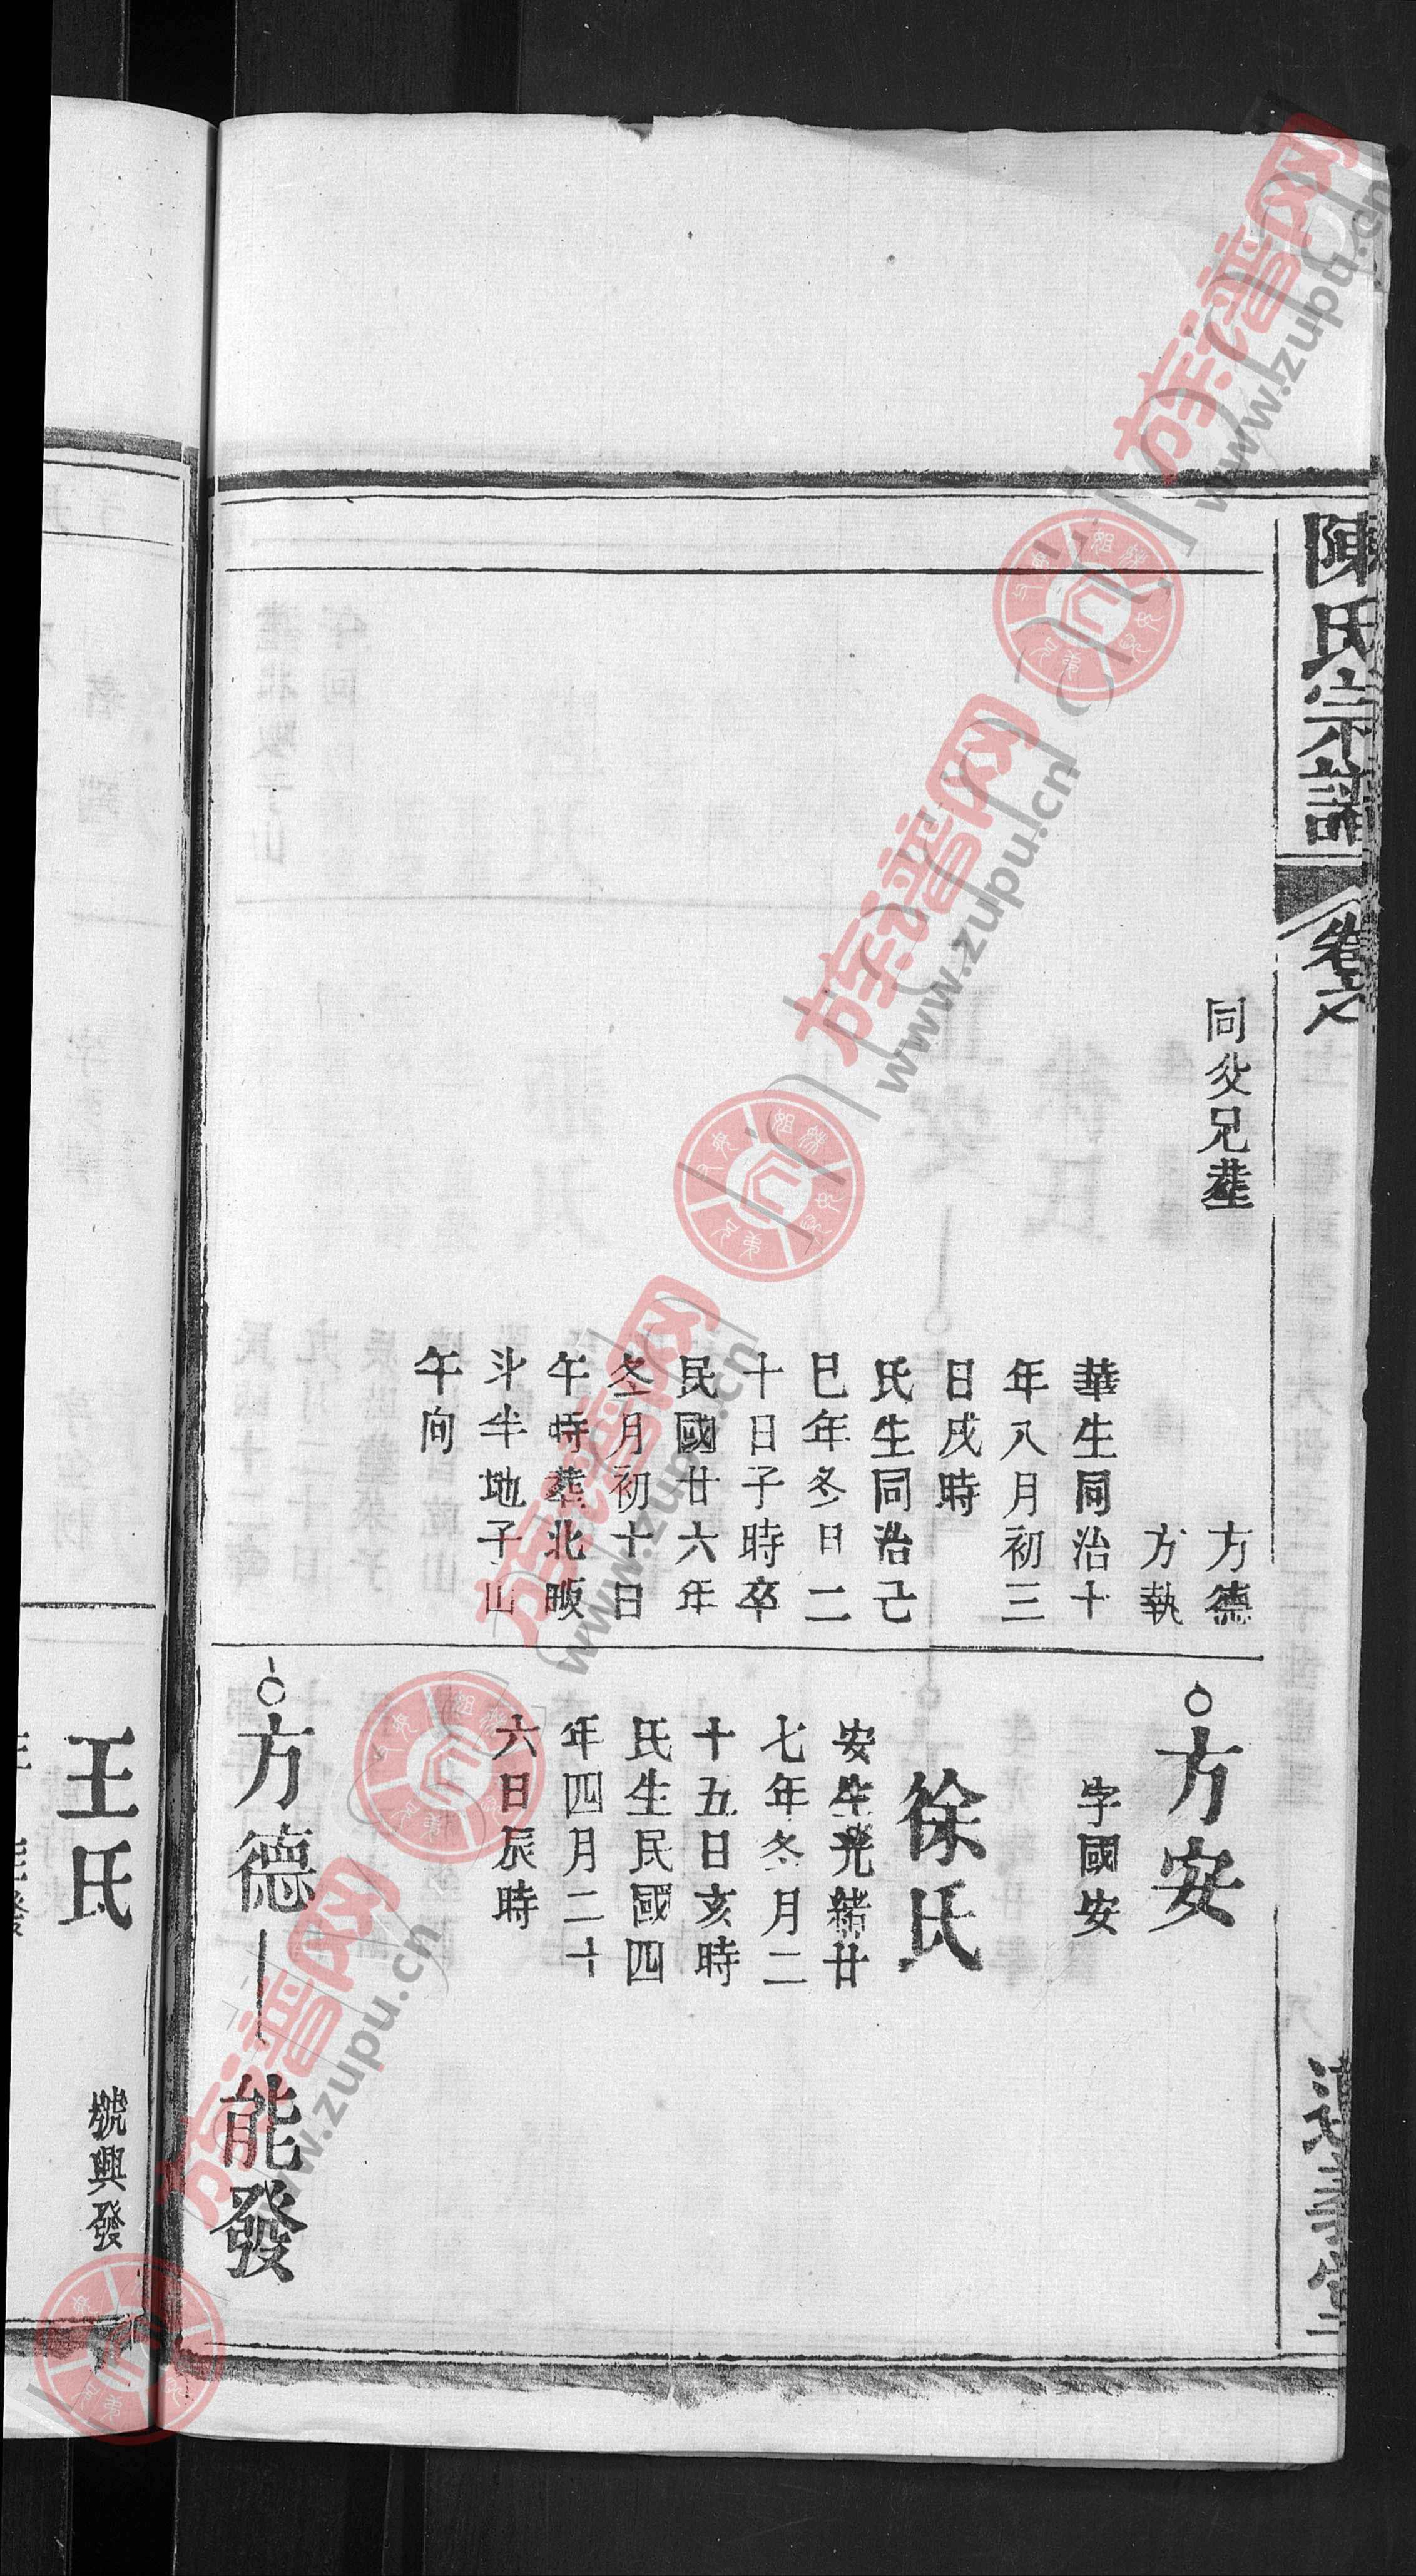 陳氏宗譜
卷六
同父兄塟
方德
方執
華生同治十
年八月初三
日戌時
氏生同治己
巳年冬日二
十日子時卒
民國廿六年
冬月初十日
午時葬北畈
斗半地子山
午向
方安
字國安
徐氏
安生光緒廿
七年冬月二
十五日亥時
氏生民國四
年四月二十
六日辰時
方德
能發
號興發
王氏
族谱网
www.zupu.cn
族谱网
www.zupu.cn
族谱网
www.zupu.cn
族谱网
www.zupu.cn